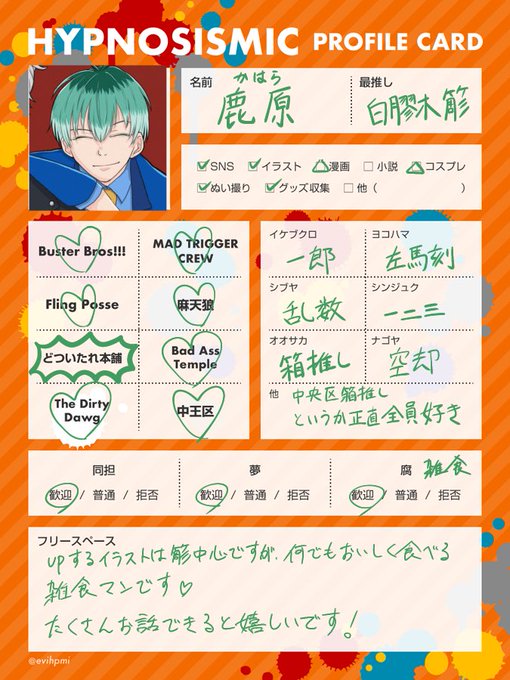 HYPNOSISMIC PROFILE CARD
名前
かはら
鹿原
最推し
白膠木 簓
SNS イラスト 漫画 小説 コスプレ
ぬい撮り グッズ収集 他( )
Buster Bros!!!
MAD TRIGGER CREW
Fling Posse
麻天狼
どついたれ本舗
Bad Ass Temple
The Dirty Dawg
中王区
イケブクロ
一郎
ヨコハマ
左馬刻
シブヤ
乱数
シンジュク
一二三
オオサカ
箱推し
ナゴヤ
空却
他 中央区箱推し
というか正直全員好き
同担
歓迎 / 普通 / 拒否
夢
歓迎 / 普通 / 拒否
腐 雑食
歓迎 / 普通 / 拒否
フリースペース
upするイラストは簓中心ですが、何でもおいしく食べる
雑食マンです♡
たくさんお話できると嬉しいです!
@evihpmi